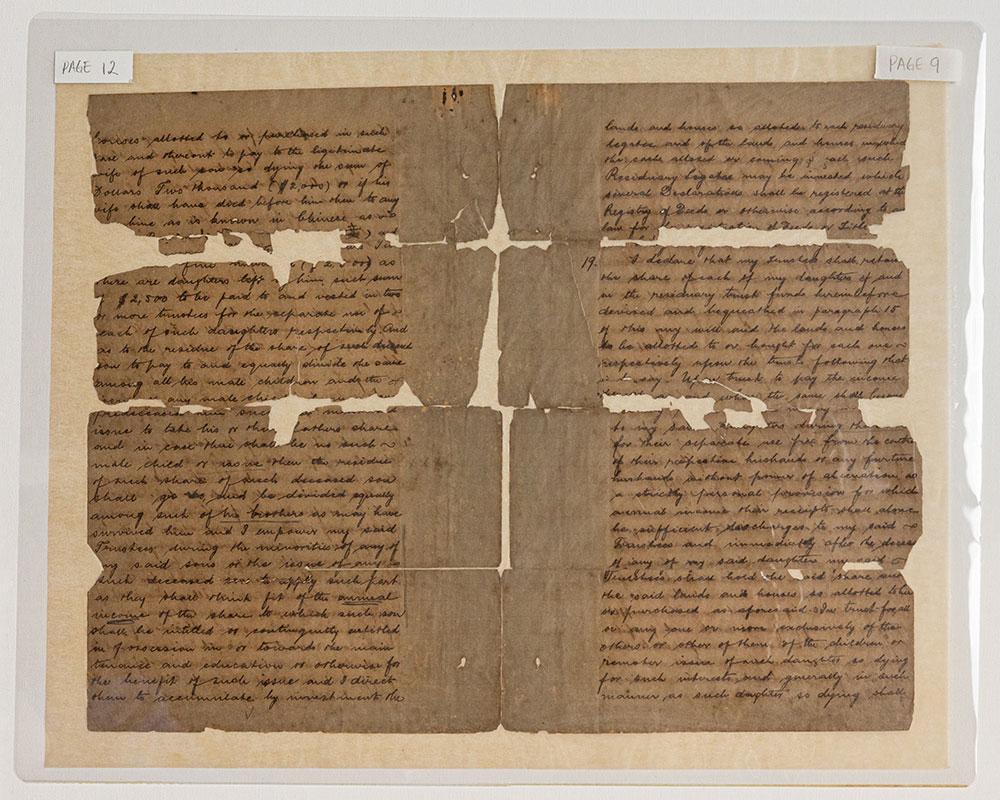 PAGE 12
houses allotted to or purchased in such
and thereout to pay to the legitimate
wife of such son so dying the sum of
Dollars Two thousand ($2,000) or if his
wife shall have died before him then to any
as is known in Chinese as
and
($2,000) as
there are daughters left him such sum
$2,500 to be paid to and vested in two
or more trustees for the separate use of
each of such daughters respectively And
as to the residue of the share of such deceased
son to pay to and equally divide the same
among all his male children and the
any male
predeceased him
issue to take his or their fathers share
and in case there shall be no such
male child or issue then the residue
of such share of such deceased son
shall go to and be divided equally
among such of his brothers as may have
survived him and I empower my said
Trustees during the minorities of any of
my said sons or the issue of any
such deceased son to apply such part
as they shall think fit of the annual
income of the share to which such son
shall be intitled or contingently entitled
in possession in or towards the main
tenance and education or otherwise for
the benefit of such issue and I direct
them to accumulate by investment the
PAGE 9
lands and houses so allotted to each residuary
legatee and of the lands and houses
the said
Residuary legatee may be invested which
several Declarations shall be registered at the
Registry of Deeds or otherwise according to
law for registration of Deeds or Title
19. I declare that my Trustees shall retain
the share of each of my daughters of and
in the residuary trust funds hereinbefore
devised and bequeathed in paragraph 15
of this my will and the lands and houses
to be allotted to or bought for each one
respectively upon the trusts following that
is to say. Upon trust to pay the income
and when the same shall
to my said daughters during their
for their separate use free from the control
of their respective husbands or any future
husbands without power of alienation as
a strictly personal provision for which
annual income their receipts shall alone
be sufficient discharges to my said
Trustees and immediately after the decease
of any of my said daughters my said
Trustees shall hold the said share and
the said lands and houses so allotted to her
or purchased as aforesaid In trust for all
or any one or more exclusively of the
others or other of them of the children or
remoter issue of such daughter so dying
for such interests and generally in such
manner as such daughter so dying shall